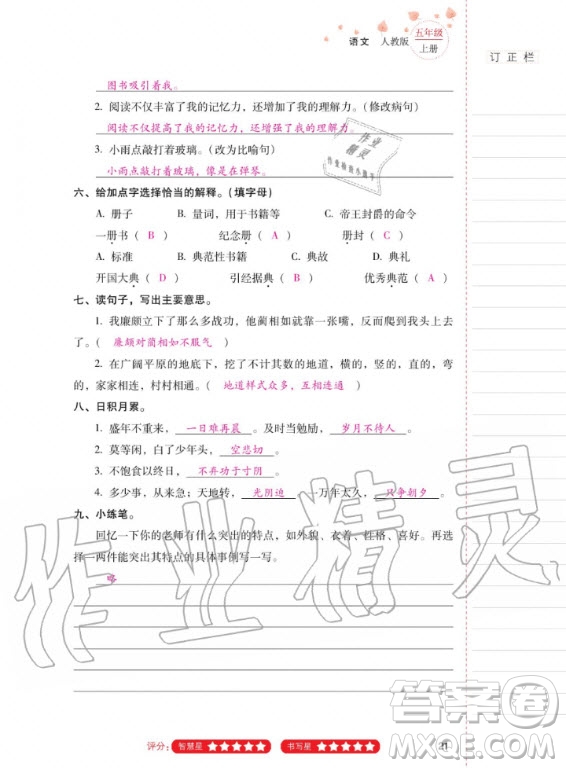 语文 人教版 五年级 上册
订正栏
图书吸引着我。
2. 阅读不仅丰富了我的记忆力，还增加了我的理解力。（修改病句）
阅读不仅提高了我的记忆力，还增强了我的理解力。
3. 小雨点敲打着玻璃。（改为比喻句）
小雨点敲打着玻璃，像是在弹琴。
六、给加点字选择恰当的解释。（填字母）
A. 册子 B. 量词，用于书籍等 C. 帝王封爵的命令
一册书（ B ） 纪念册（ A ） 册封（ C ）
A. 标准 B. 典范性书籍 C. 典故 D. 典礼
开国大典（ D ） 引经据典（ B ） 优秀典范（ A ）
七、读句子，写出主要意思。
1. 我廉颇立下了那么多战功，他蔺相如就靠一张嘴，反而爬到我头上来了。
（ 廉颇对蔺相如不服气 ）
2. 在广阔平原的地底下，挖了不计其数的地道，横的，竖的，直的，弯
的，家家相连，村村相通。（ 地道样式众多，互相连通 ）
八、日积月累。
1. 盛年不重来，一日难再晨。及时当勉励，岁月不待人。
2. 莫等闲，白了少年头，空悲切。
3. 不饱食以终日，不弃功于寸阴。
4. 多少事，从来急；天地转，光阴迫。一万年太久，只争朝夕。
九、小练笔。
回忆一下你的老师有什么突出的特点，如外貌、衣着、性格、喜好。再选
择一两件能突出其特点的具体事例写一写。
略
评分： 智慧星 ★★★★★ 书写星 ★★★★★
21
作业精灵
答案圈